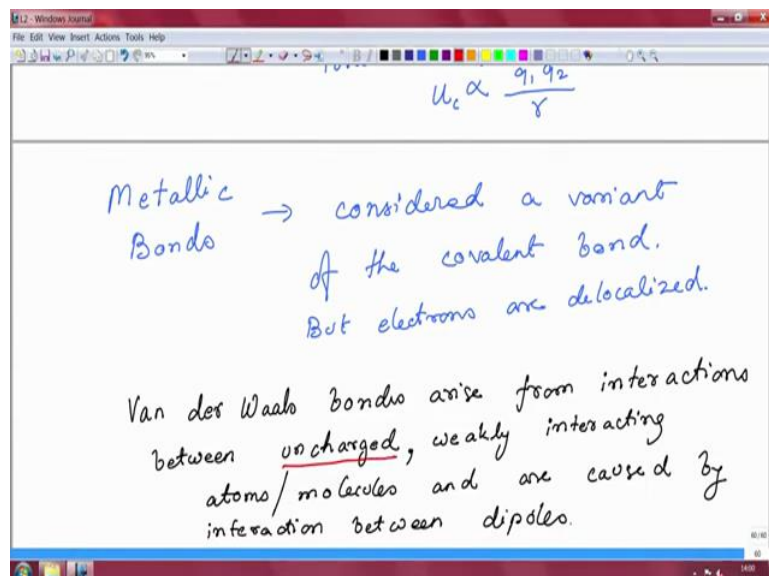 L2 - Windows Journal
File Edit View Insert Actions Tools Help
U_c ∝ q_1 q_2 / r
Metallic → considered a variant
Bonds of the covalent bond.
But electrons are delocalized.
Van der Waals bonds arise from interactions
between uncharged, weakly interacting
atoms/molecules and are caused by
interaction between dipoles.
60/60
60
14:00